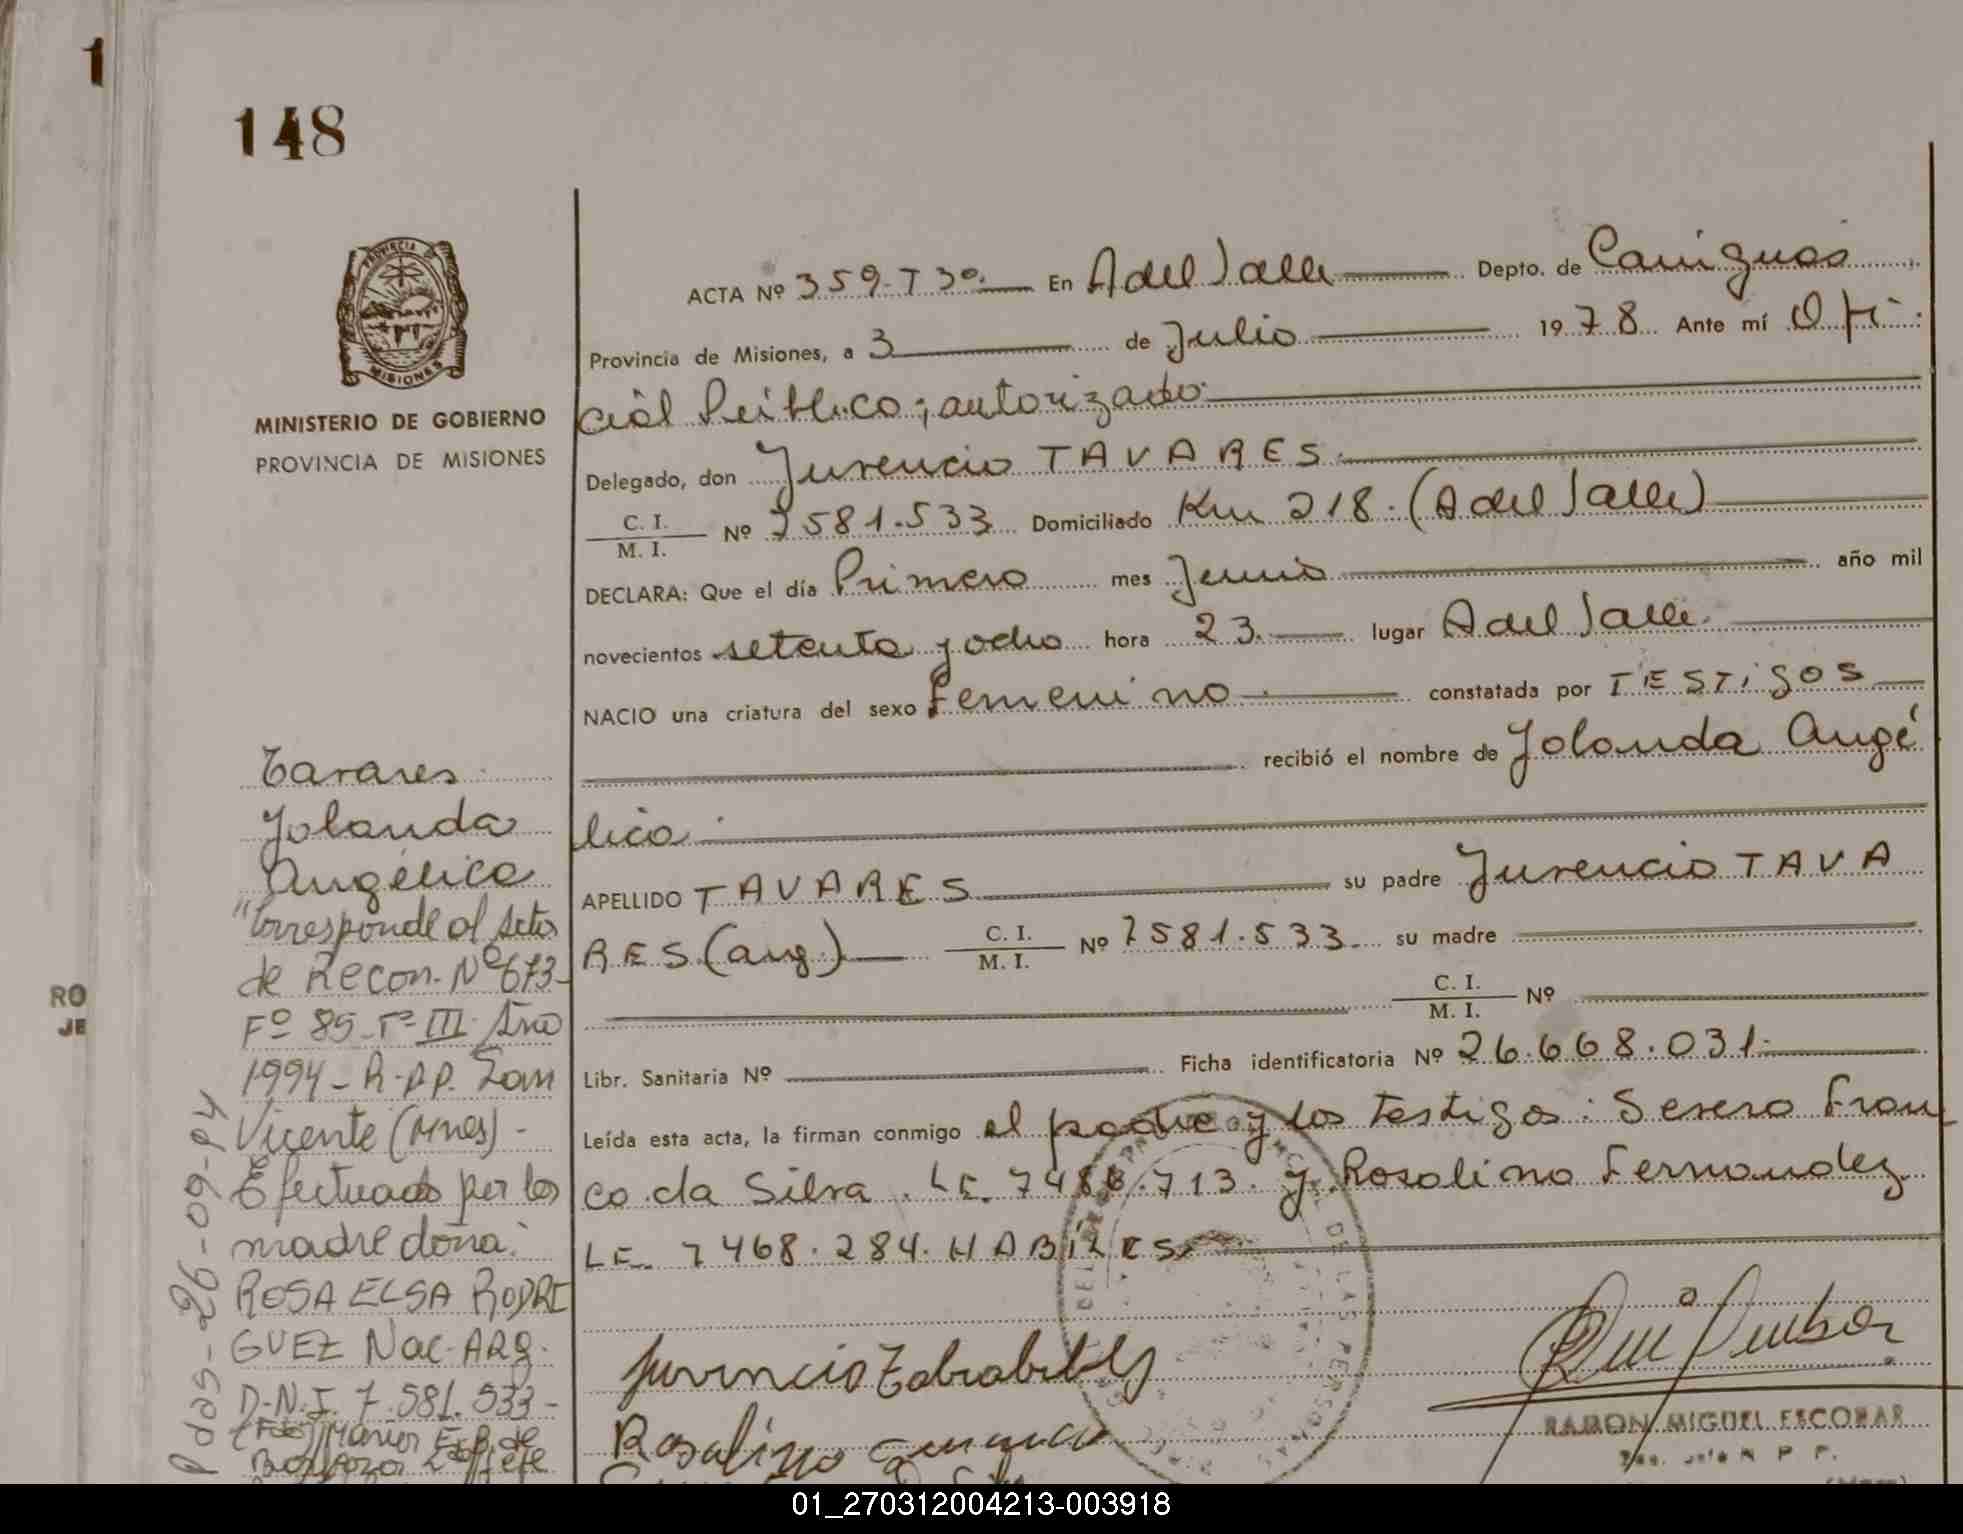 1
148
PROVINCIA DE
MISIONES
MINISTERIO DE GOBIERNO
PROVINCIA DE MISIONES
ACTA Nº 359-Tº 3º En A del Valle Depto. de Cainguas
Provincia de Misiones, a 3 de Julio 1978 Ante mí Ofi-
cial Público; autorizado
Delegado, don Juvencio TAVARES.
C. I. / M. I. Nº 7581.533 Domiciliado Km 218. (A del Valle)
DECLARA: Que el día Primero mes Junio año mil
novecientos setenta y ocho hora 23. lugar A del Valle.
NACIO una criatura del sexo Femenino constatada por TESTiGOS
recibió el nombre de Yolanda Angé
lica
APELLIDO TAVARES su padre Juvencio TAVA
RES (arg.) C. I. / M. I. Nº 7581.533. su madre
C. I. / M. I. Nº
Libr. Sanitaria Nº Ficha identificatoria Nº 26.668.031.
Leída esta acta, la firman conmigo el padre y los testigos: Severo Fran
co da Silva. LE. 7486.713. y Rosalino Fernandez
LE. 7468.284. HABILES
Tavares
Yolanda
Angélica
"Corresponde al Acta
de Recon. Nº 673-
Fº 85-Tº III Año
1994- R.P.P. San
Vicente (Mnes)-
Efectuado por la
madre doña:
ROSA ELSA RODRI
GUEZ Nac. ARg.
D.N.I. 7.581.533-
Pdas-26-09-94
RO
JE
DE LAS PERSONAS
RAMON MIGUEL ESCOBAR
01_270312004213-003918